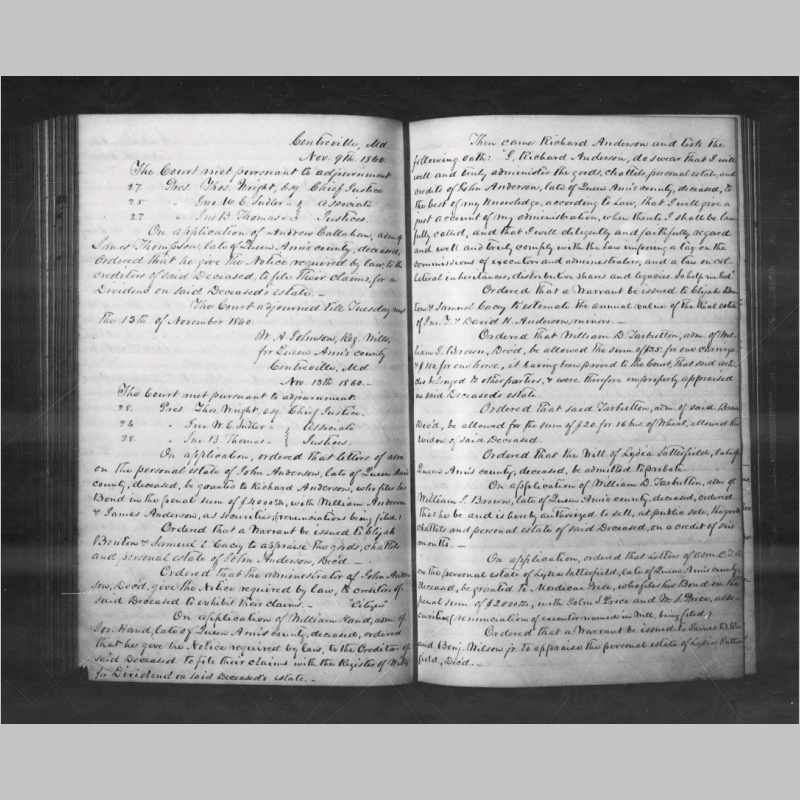 Centreville, Md.
Nov. 9th 1860.
The Court met pursuant to adjournment
27 Pres. Thos. Wright, esq Chief Justice
25 " Jno. W. E. Sudler } Associate
27 " Jas. B. Thomas } Justices.
On application of Andrew Callahan, adm. of
James Thompson, late of Queen Ann's county, deceased,
Ordered that he give the Notice required by law, to the
creditors of said Deceased, to file their claims, for a
Dividend on said Deceased's estate. —
The Court adjourned till Tuesday next
the 13th of November 1860.
W. A. Johnson, Reg. Wills,
for Queen Ann's county
Centreville, Md
Nov. 13th 1860. —
The Court met pursuant to adjournment.
28. Pres Thos. Wright, esq Chief Justice.
26 " Jno. W. E. Sudler } Associate
28. " Jas. B. Thomas } Justices.
On application, ordered that letters of adm.
on the personal estate of John Anderson, late of Queen Ann's
county, deceased, be granted to Richard Anderson, who files his
Bond in the penal sum of with William Anderson
& James Anderson, as securities, (renunciations being filed.)
Ordered that a Warrant be issued to Elijah
Benton & Samuel Cacy to appraise the goods, chattels
and personal estate of John Anderson, Dec'd. —
Ordered that the administrator of John Ander-
son, Dec'd, give the Notice required by law, to creditors of
said Deceased to exhibit their claims. — "Citizen"
On application of William Hand, adm. of
Hand, late of Queen Ann's county, deceased, ordered
that he give the Notice required by law, to the Creditors of
said Deceased to file their claims with the Register of Wills
for Dividend on said Deceased's estate. —
Then came Richard Anderson and took the
following oath: "I, Richard Anderson, do swear that I will
well and truly administer the goods, chattels personal estate, and
credits of John Anderson, late of Queen Ann's county, deceased, to
the best of my knowledge, according to law, that I will give a
just account of my administration, when thereto I shall be law-
fully called, and that I will diligently and faithfully regard
and well and truly comply with the law imposing a tax on the
commissions of executors and administrators, and a tax on col-
lateral inheritances, distributive shares and legacies. So help me God."
Ordered that a Warrant be issued to Elijah Ben-
ton & Samuel Cacy to estimate the annual value of the Real estate
of & David H. Anderson, minors. —
Ordered that William D. Tarbutton, adm. of Wil-
liam S. Brown, Dec'd, be allowed the sum of for one carriage
& for one horse, it having been proved to the Court, that said arti-
cles belonged to other parties, & were therefore improperly appraised
as said Deceased's estate
Ordered that said Tarbutton, adm. of said Brown
Dec'd, be allowed for the sum of $20 for 16 bus. of Wheat, allowed the
widow of said Deceased
Ordered that the Will of Lydia Satterfield, late of
Queen Ann's county, deceased, be admitted to probate.
On application of William D. Tarbutton, adm. of
William S. Brown, late of Queen Ann's county, deceased, ordered
that he be and is hereby authorized to sell, at public sale, the goods
chattels and personal estate of said Deceased, on a credit of six
months. —
On application, ordered that letters of adm. C.T.A
on the personal estate of Lydia Satterfield, late of Queen Ann's county,
deceased, be granted to who files his Bond in the
penal sum of $2000 with John S. Price and W. S. Price, as se-
curities, (renunciation of executor named in Will, being filed.)
Ordered that a Warrant be issued to James
and Benj. Wilson jr. to appraise the personal estate of Lydia Satter-
field, Dec'd. —